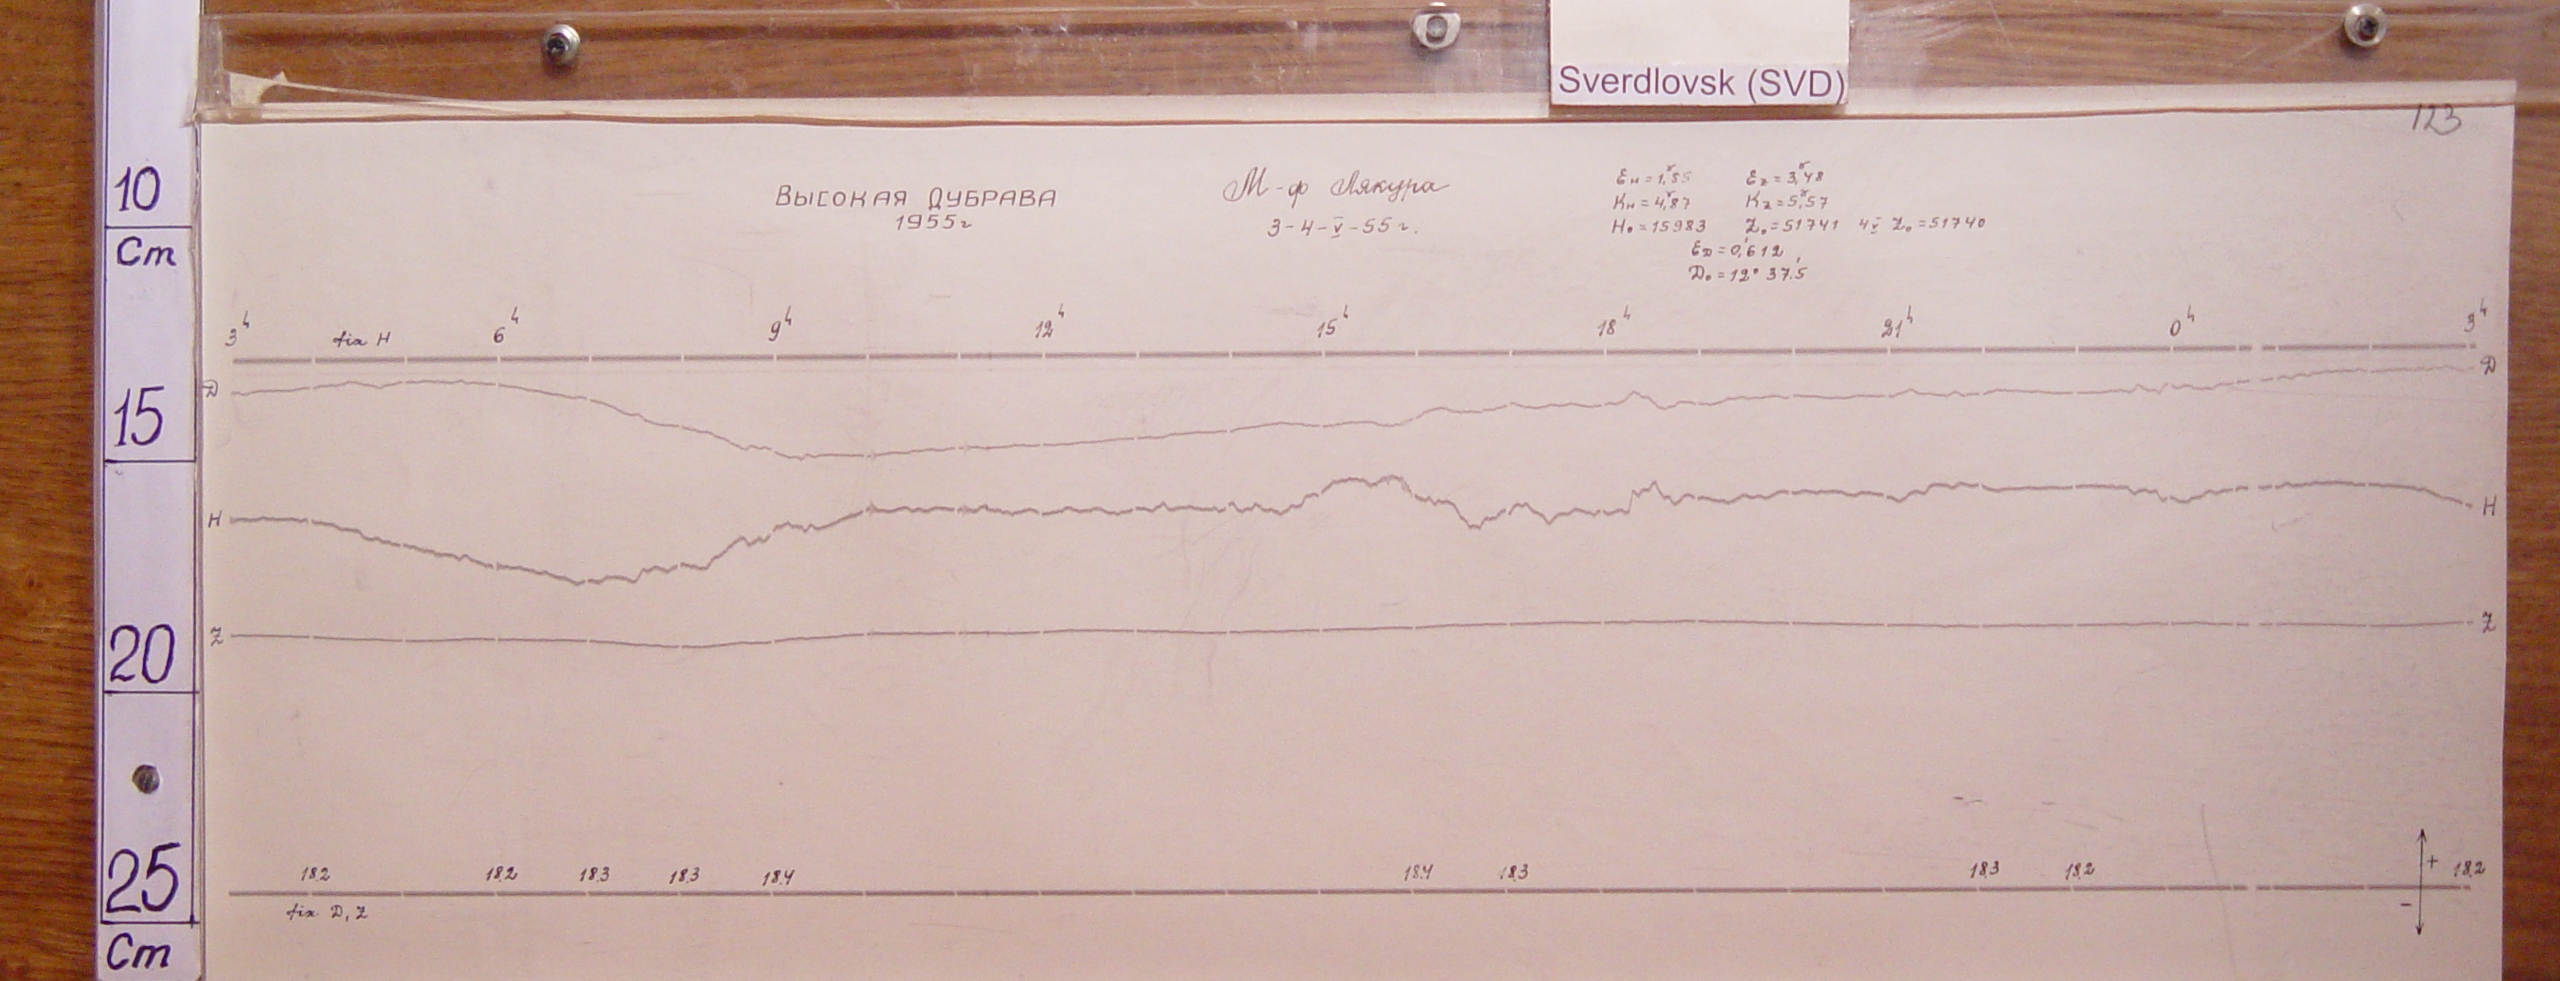 Sverdlovsk (SVD)
123
10
Cm
15
20
25
Cm
ВЫСОКАЯ ДУБРАВА
1955г
М-ф Лякура
3-4-V-55г.
Eн=1,ᵞ85 Ez=3,ᵞ48
Kн=4,ᵞ87 Kz=5,ᵞ57
H₀=15983 Z₀=51741 4V Z₀=51740
ED=0,'612
D₀=12° 37,'5
3ʰ fix H 6ʰ 9ʰ 12ʰ 15ʰ 18ʰ 21ʰ 0ʰ 3ʰ
D D
H H
Z Z
18.2 18.2 18.3 18.3 18.4 18.4 18.3 18.3 18.2 + 18.2
fix D, Z −